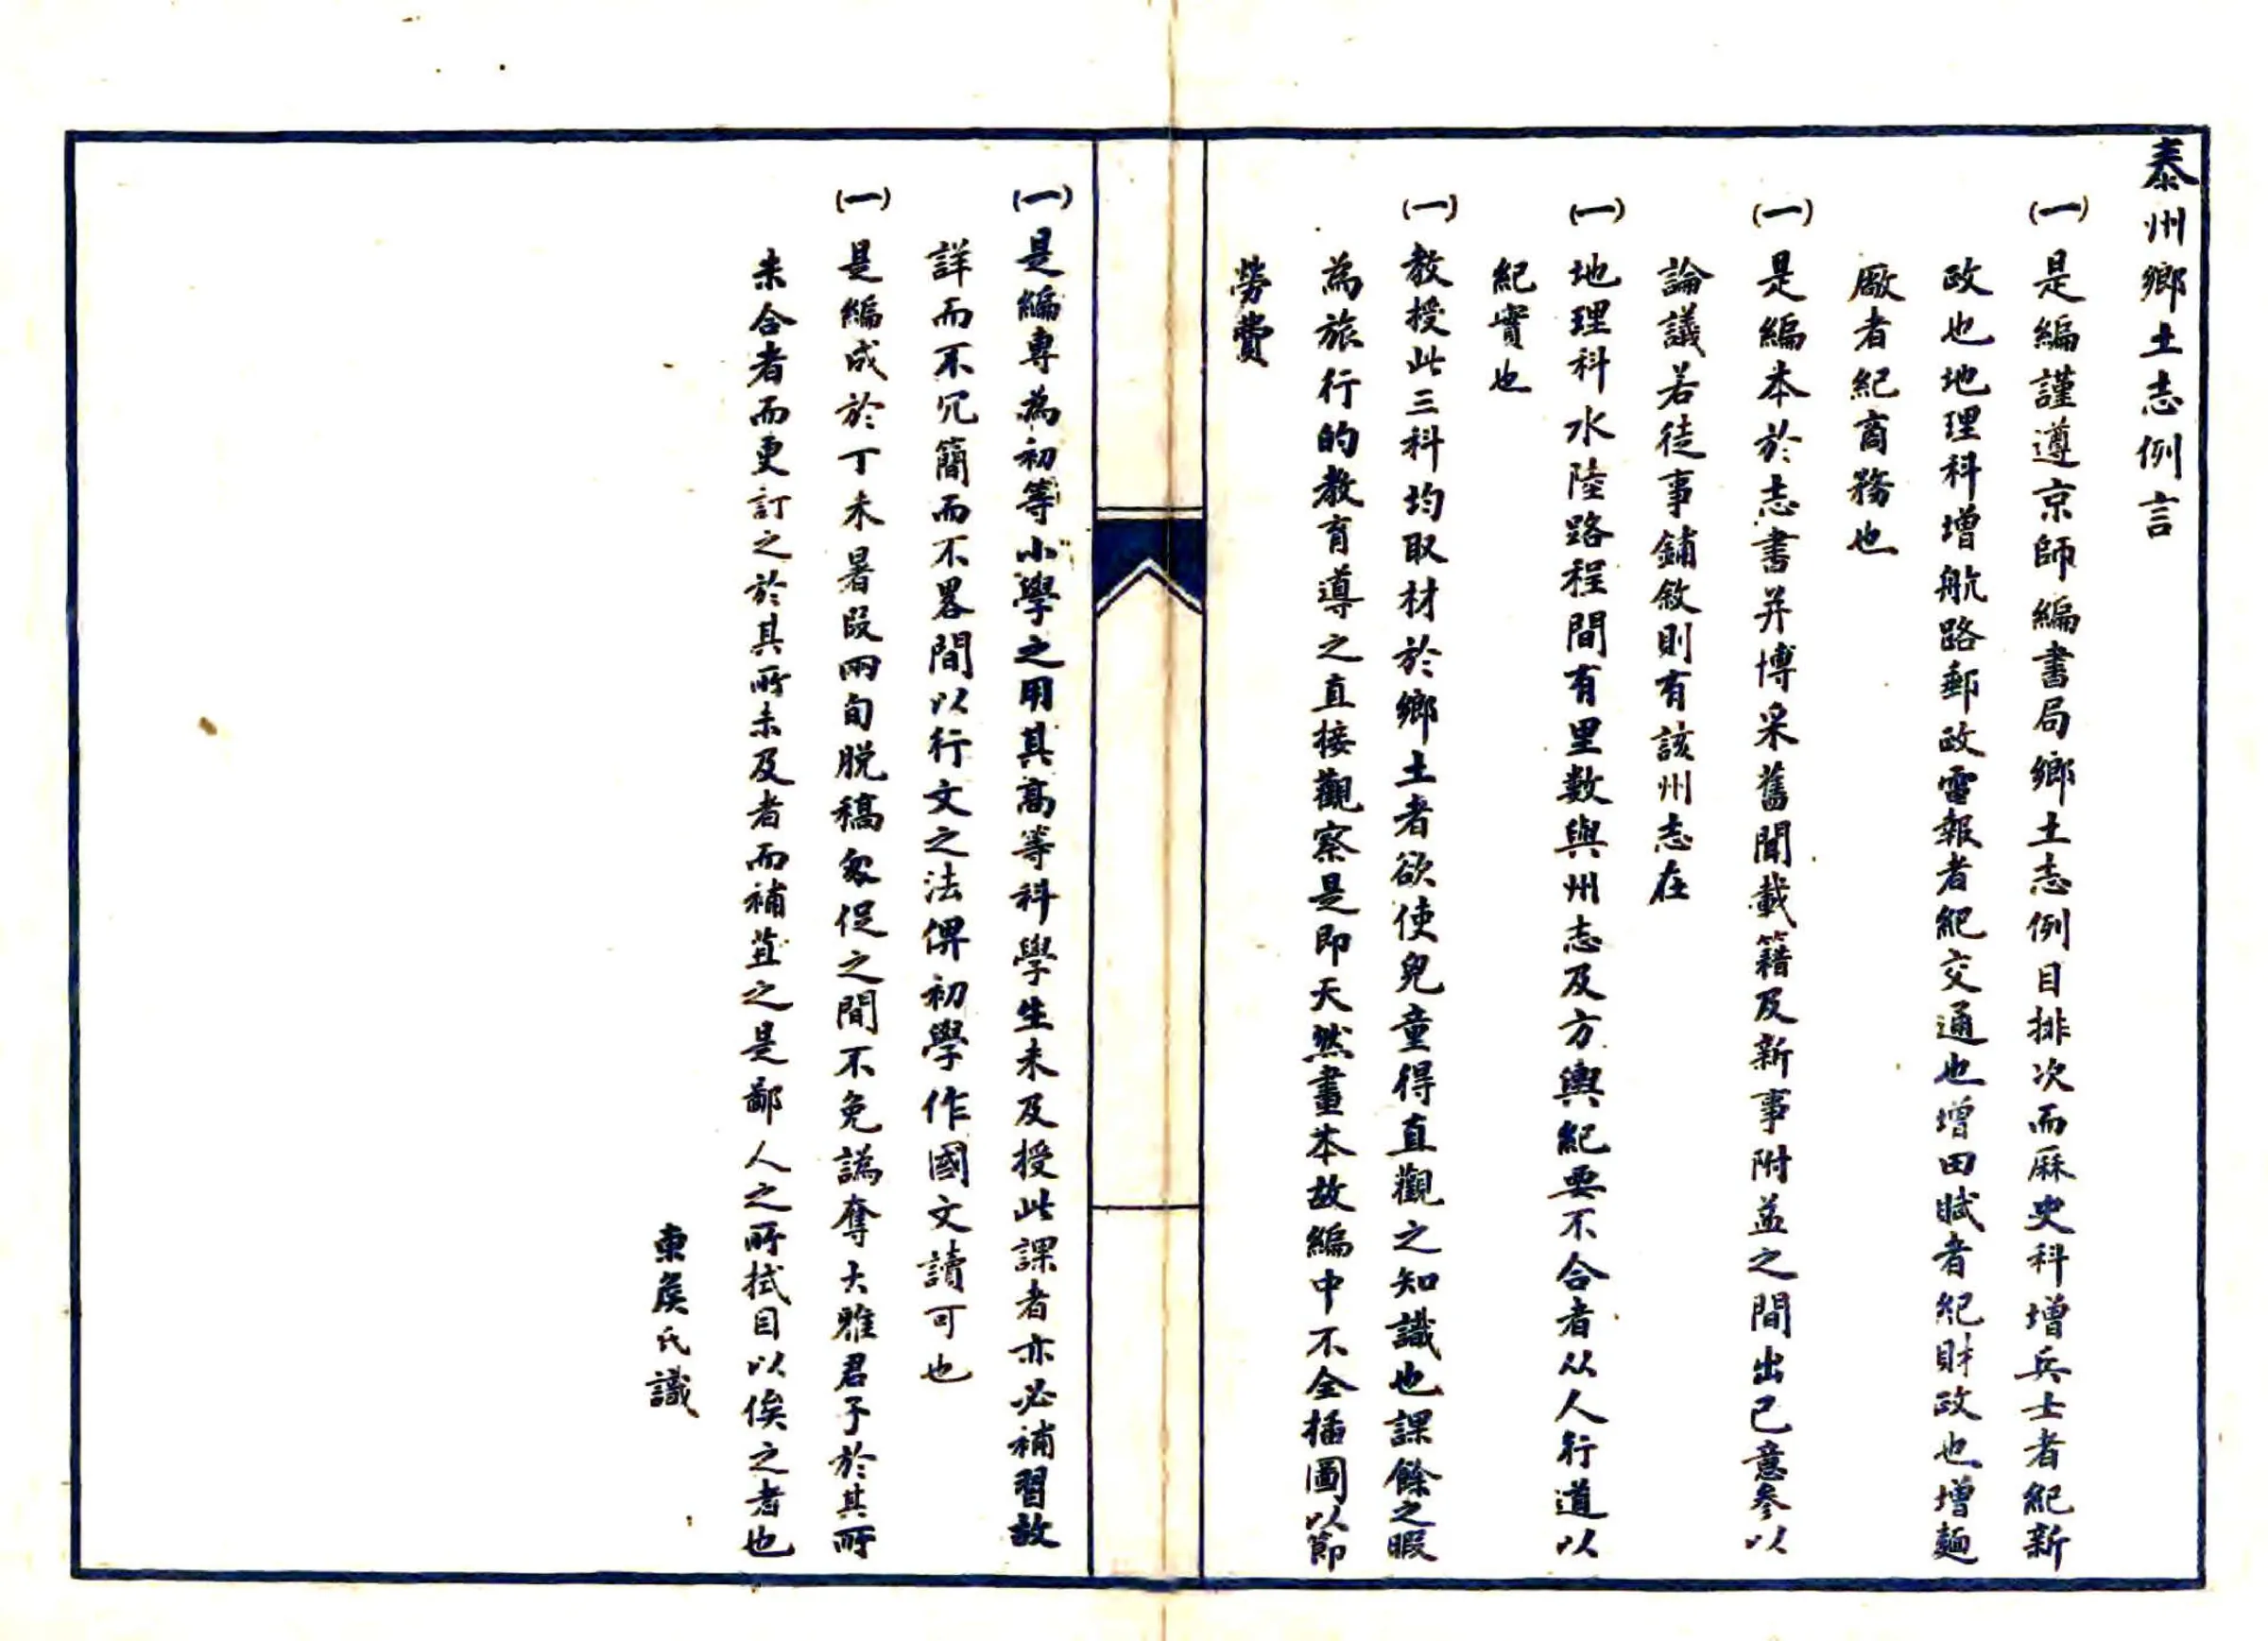 泰州鄉土志例言
(一)是編謹遵京師編書局鄉土志例目排次而厤史科增兵士者紀新
政也地理科增航路郵政電報者紀交通也增田賦者紀財政也增麵
廠者紀商務也
(一)是編本於志書并博采舊聞載籍及新事附益之間出己意參以
論議若徒事鋪敘則有該州志在
(一)地理科水陸路程間有里数與州志及方輿紀要不合者从人行道以
紀實也
(一)教授此三科均取材於鄉土者欲使兒童得直觀之知識也課餘之暇
為旅行的教育導之直接觀察是即天然畫本故編中不全插圖以節
勞費
(一)是編專為初等小學之用其高等科學生未及授此課者亦必補習故
詳而不冗簡而不畧間以行文之法俾初學作國文讀可也
(一)是編成於丁未暑叚兩旬脱稿匆促之間不免譌奪大雅君子於其所
未合者而更訂之於其所未及者而補苴之是鄙人之所拭目以俟之者也
東矦氏識